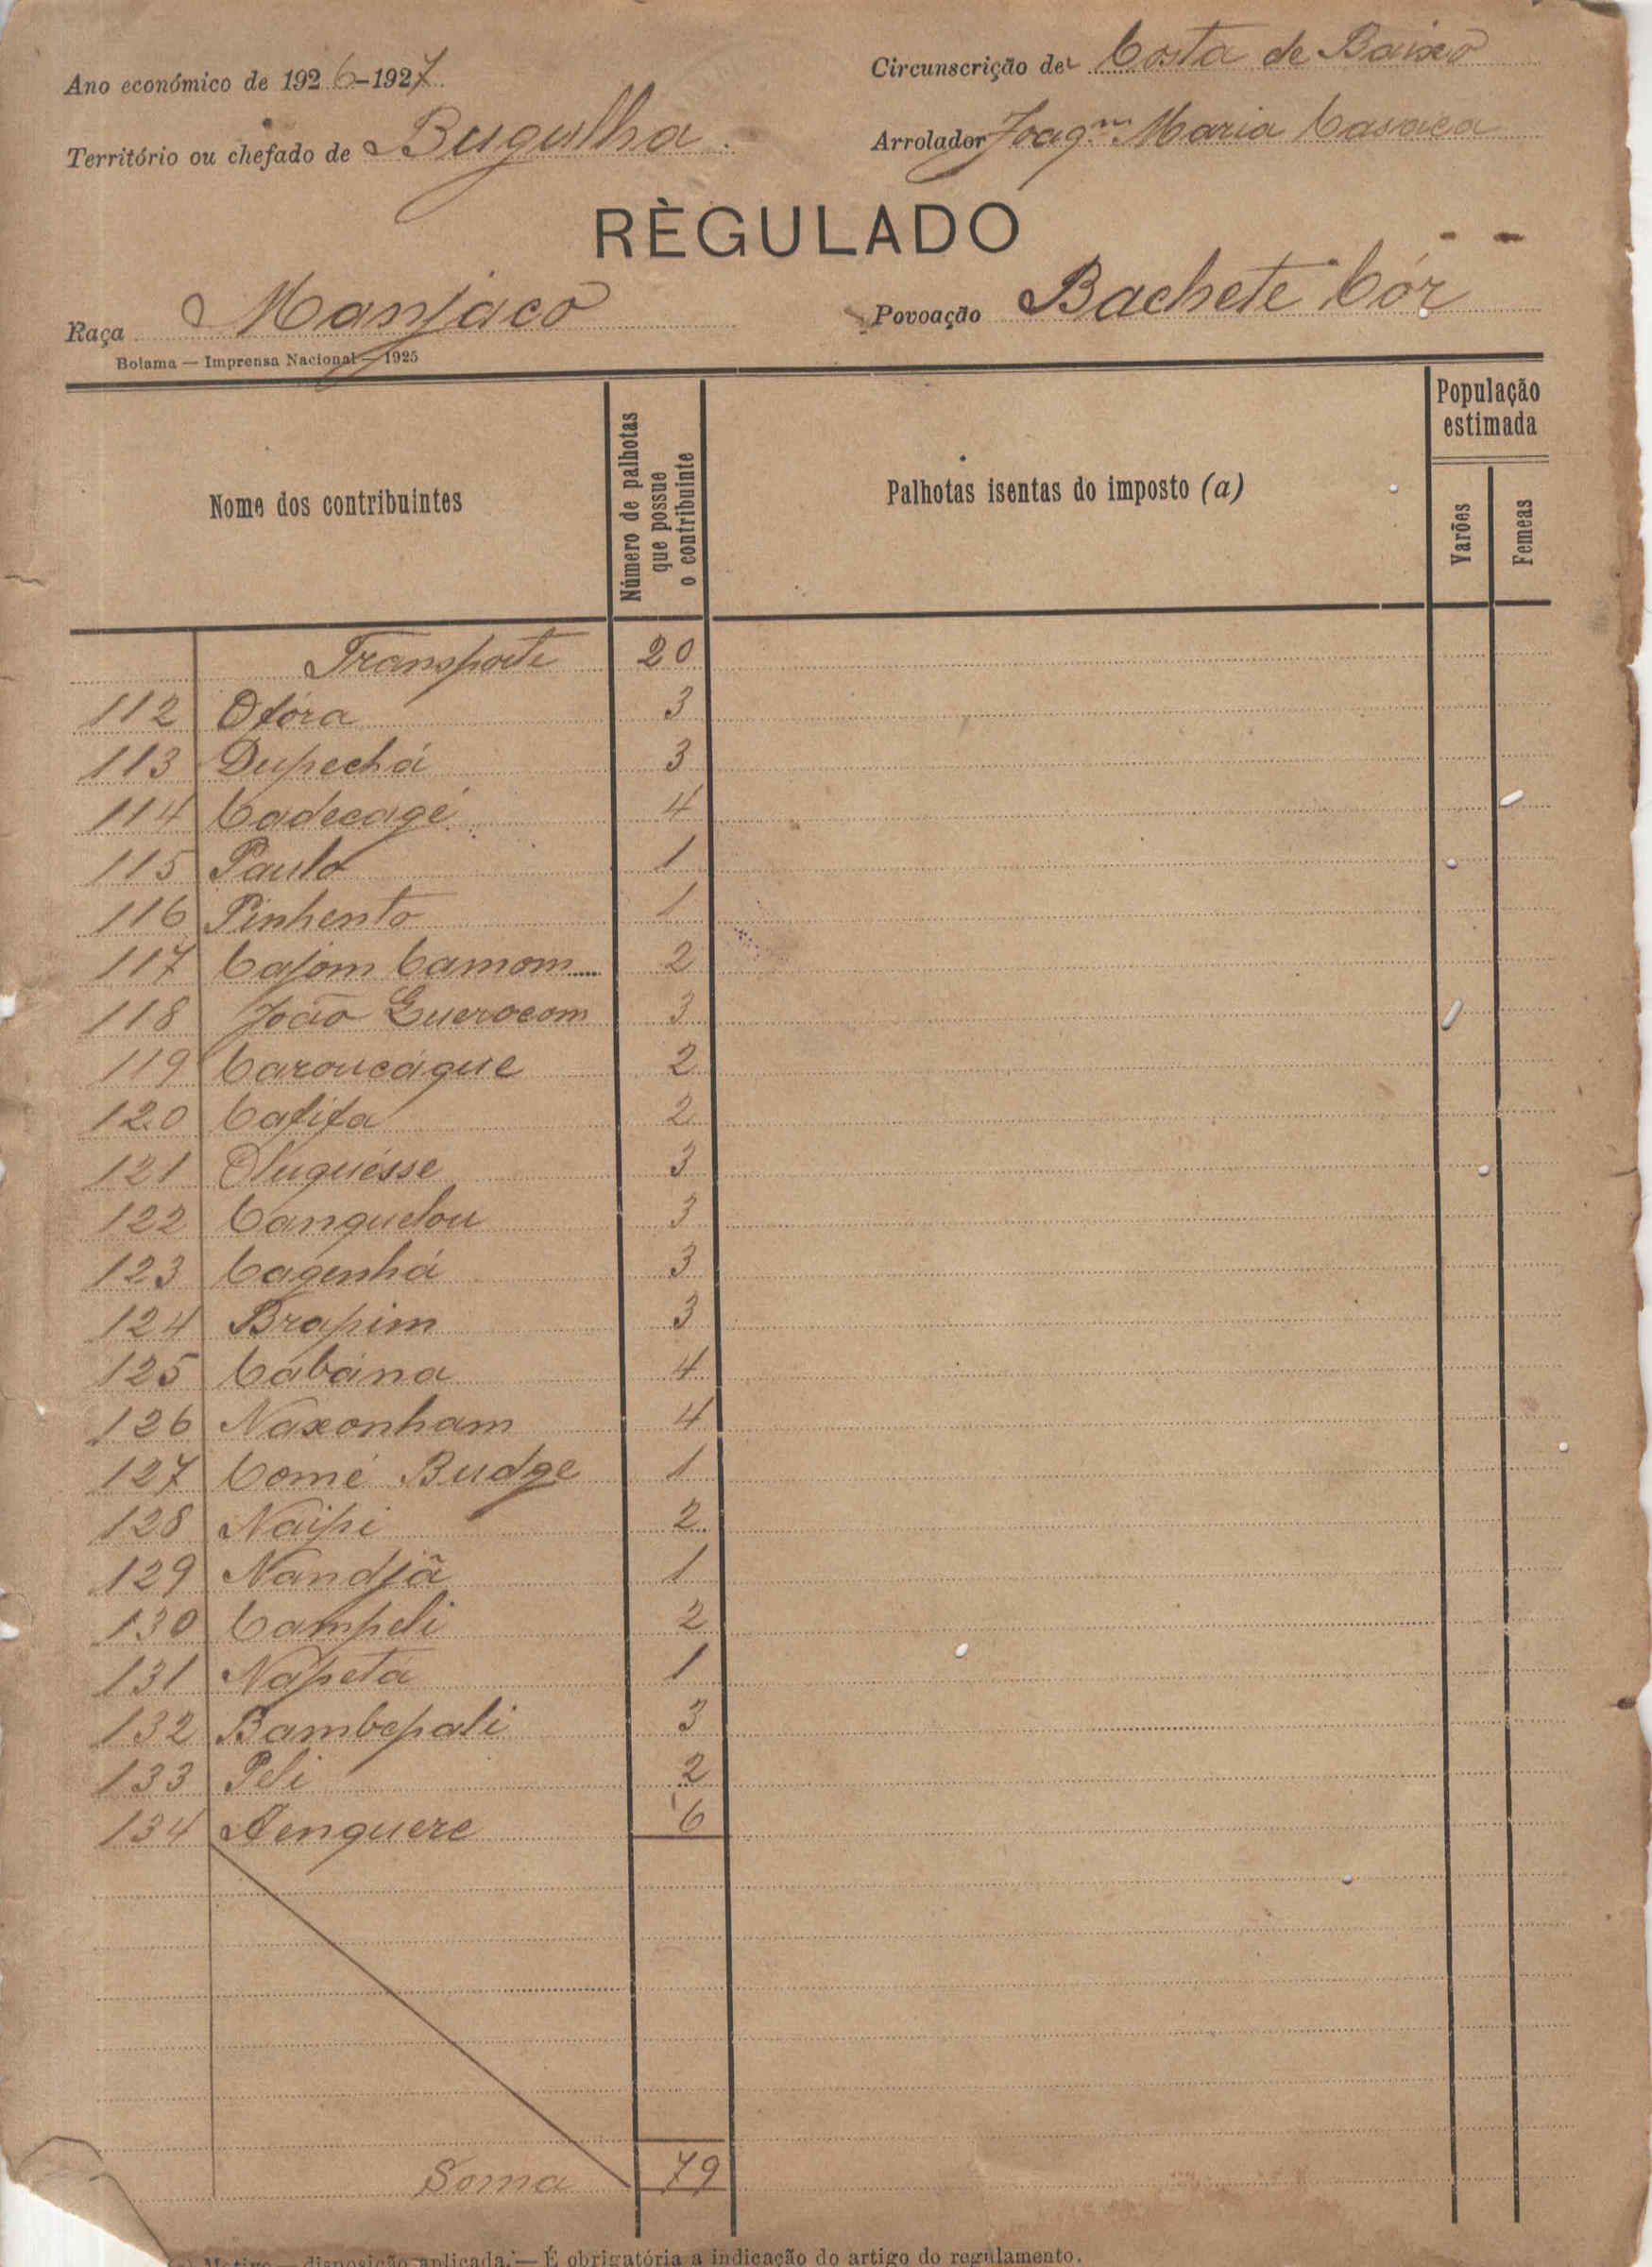 Ano económico de 1926-1927
Circunscrição de Costa de Baixo
Território ou chefado de Bugulha.
Arrolador Joaqm Maria
RÈGULADO
Raça Manjaco
Povoação Bachete Cór
Bolama — Imprensa Nacional — 1925
Nome dos contribuintes
Número de palhotas que possue o contribuinte
Palhotas isentas do imposto (a)
População estimada
Varões
Femeas
Transporte 20
112 Ofóra 3
113 Dupechá 3
114 Cadecagé 4
115 Paulo 1
116 Pinhento 1
117 Cajom Camom 2
118 João 3
119 Caroucágue 2
120 Cafifa 2
121 Oluguésse 3
122 Canguelou 3
123 Cagenhá 3
124 Brapim 3
125 Cabána 4
126 Naxonham 4
127 Comé Budge 1
128 Naipi 2
129 Nandjã 1
130 Campeli 2
131 Napeta 1
132 Bambepali 3
133 Peli 2
134 6
Soma 79
(a) Motivo — disposição aplicada. — É obrigatória a indicação do artigo do regulamento.